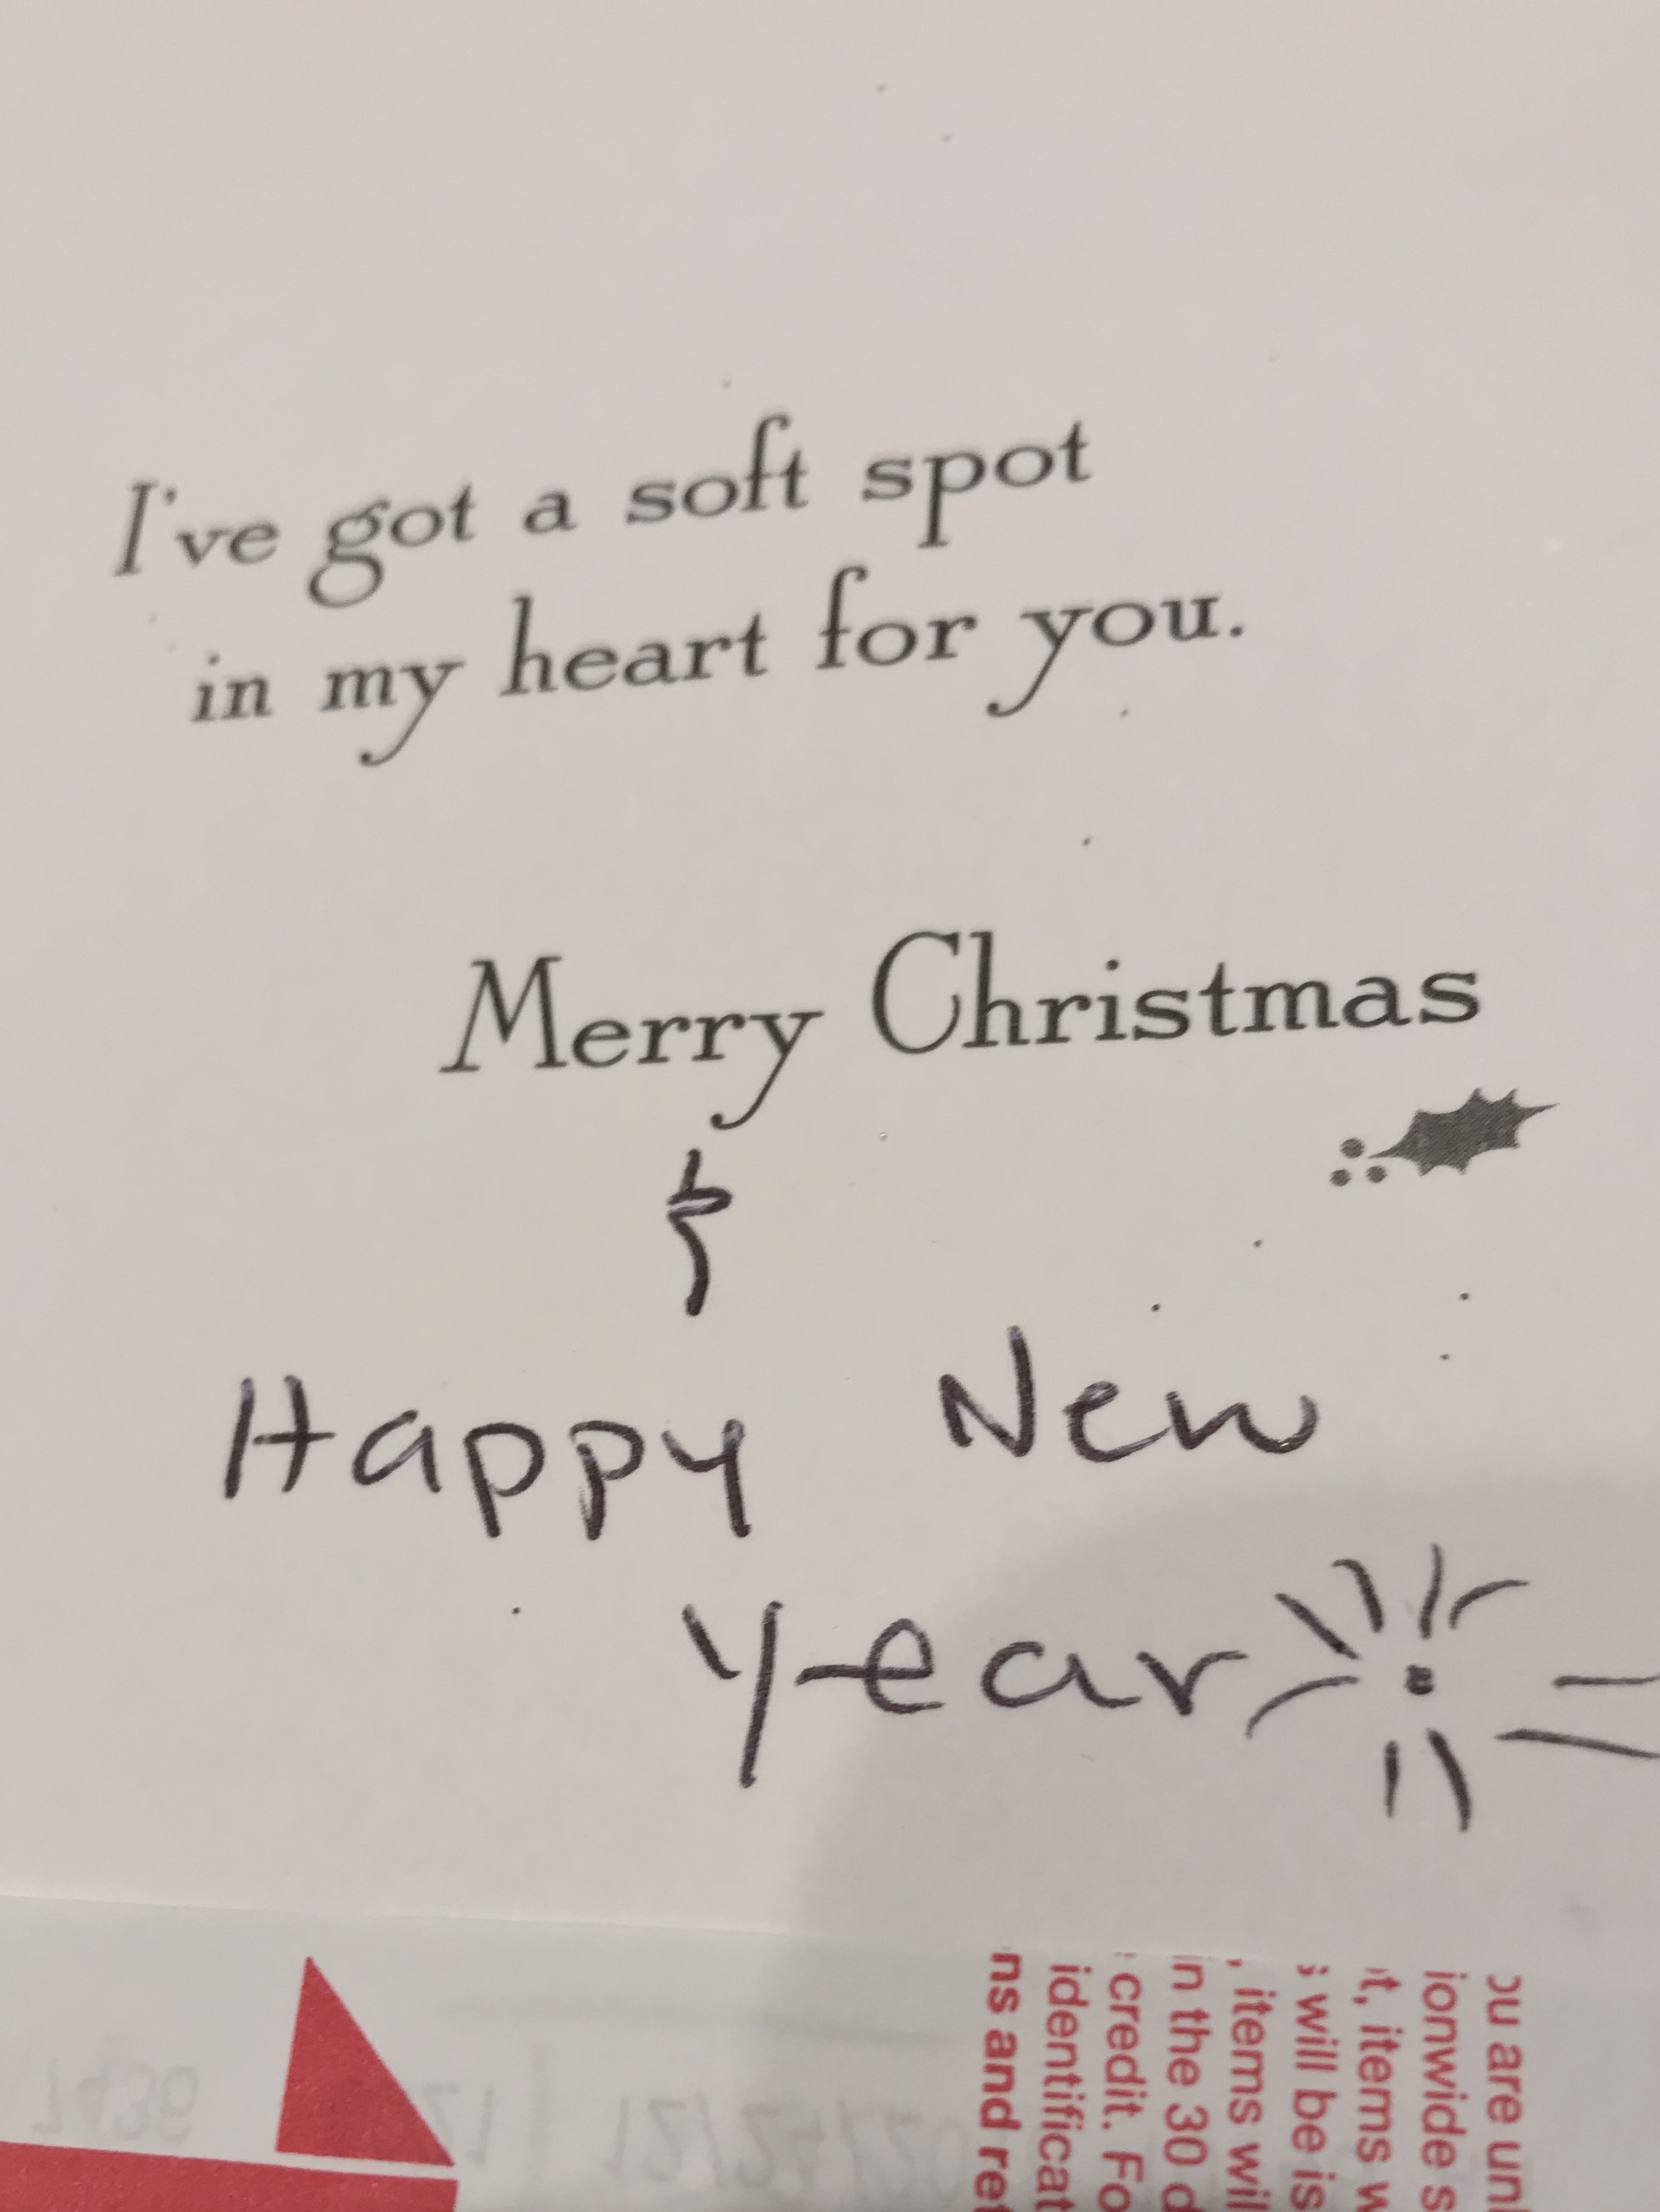 I've got a soft spot
in my heart for you.
Merry Christmas
&
Happy New
Year
ou are
ionwide
t, items
s will be is
, items
in the 30
credit. Fo
identificat
ns and